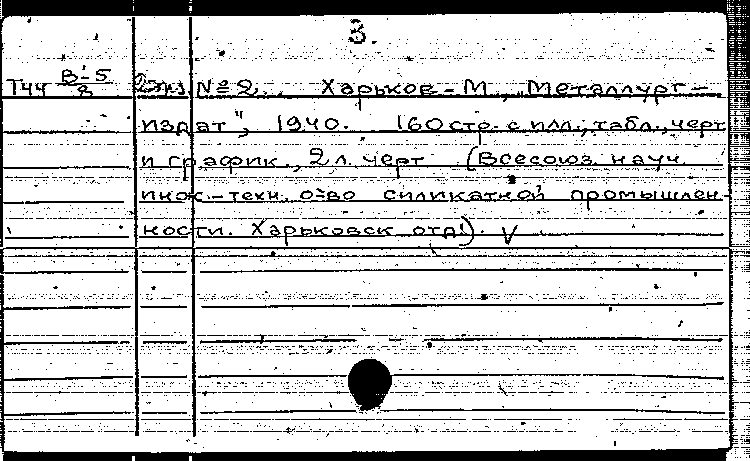 3.
Т44 В-5/8 2экз. № 2. Харьков - М., "Металлург-
издат", 1940. 160 стр. с илл., табл., черт
и график., 2 л. черт (Всесоюз. науч.
инж-техн. о-во силикатной промышлен-
ности. Харьковск отд.). V